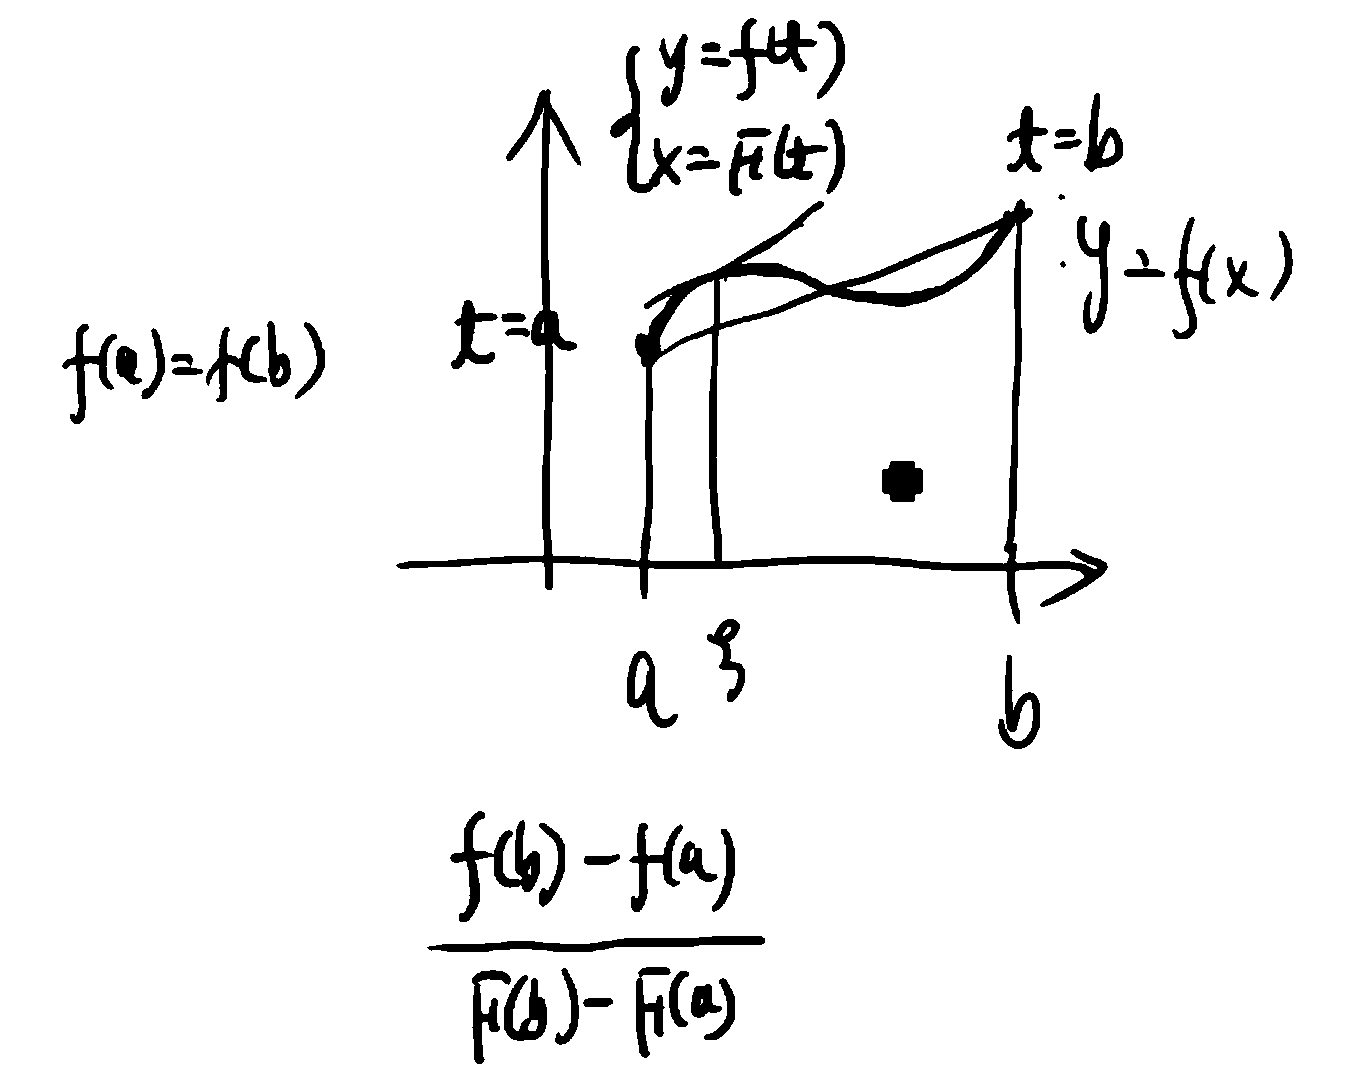 y=f(t)
x=F(t)
t=b
y=f(x)
t=a
f(a)=f(b)
a ξ b
f(b)-f(a)
F(b)-F(a)